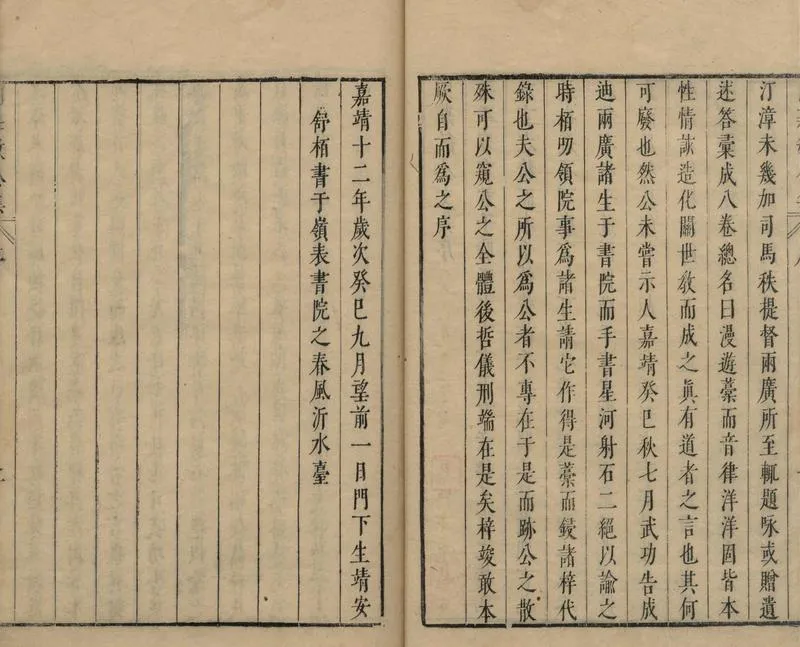 汀漳未幾加司馬秩提督兩廣所至輒題咏或贈遺
迷答彙成八卷總名曰漫遊藁而音律洋洋固皆本
性情詠造化關世教而成之眞有道者之言也其何
可廢也然公未嘗示人嘉靖癸巳秋七月武功告成
迪兩廣諸生于書院而手書星河射石二絕以諭之
時栢叨領院事爲諸生請它作得是藁而鋟諸梓代
錄也夫公之所以爲公者不專在于是而跡公之散
殊可以窺公之全體後哲儀刑端在是矣梓竣敢本
厥自而爲之序
嘉靖十二年歲次癸巳九月望前一日門下生靖安
舒栢書于嶺表書院之春風沂水臺